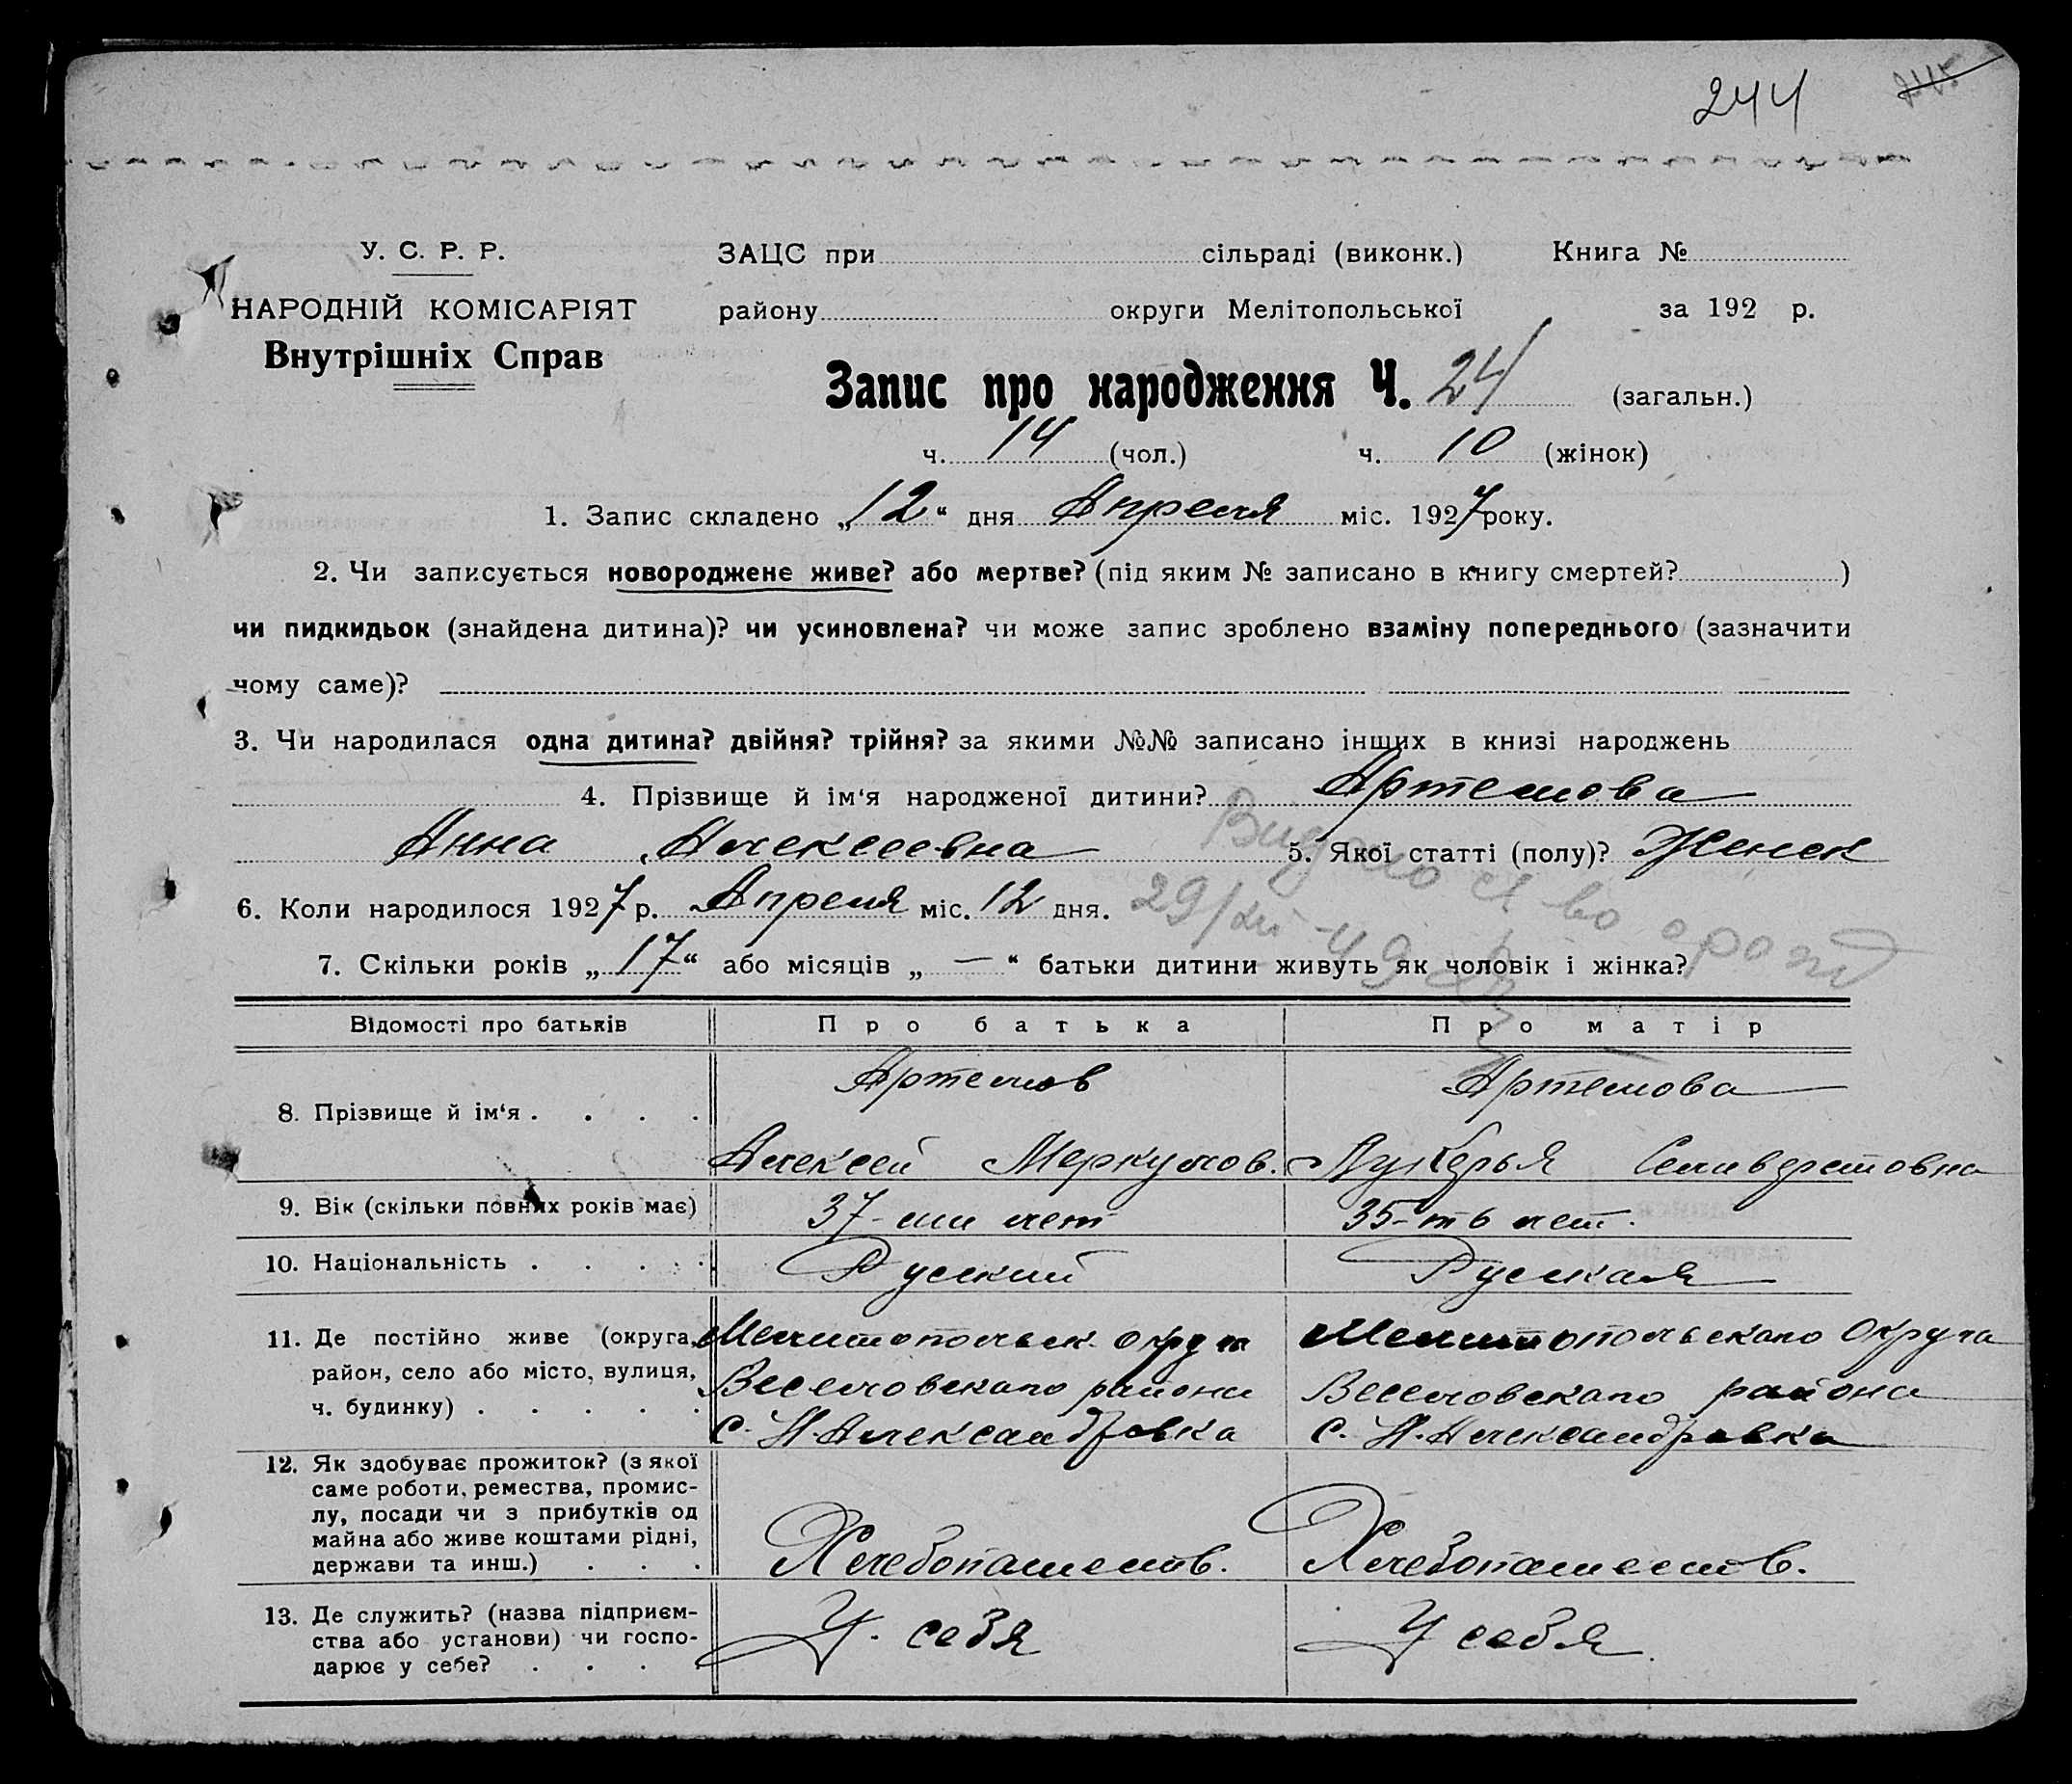 244
У. С. Р. Р.
НАРОДНІЙ КОМІСАРІЯТ
Внутрішніх Справ
ЗАЦС при сільраді (виконк.) Книга №
району округи Мелітопольської за 192 р.
Запис про народження Ч. 24 (загальн.)
ч. 14 (чол.) ч. 10 (жінок)
1. Запис складено „12“ дня Апреля міс. 1927 року.
2. Чи записується новороджене живе? або мертве? (під яким № записано в книгу смертей? )
чи пидкидьок (знайдена дитина)? чи усиновлена? чи може запис зроблено взаміну попереднього (зазначити
чому саме)?
3. Чи народилася одна дитина? двійня? трійня? за якими №№ записано інших в книзі народжень
4. Прізвище й ім‘я народженої дитини? Артемова
Анна Алексеевна 5. Якої статті (полу)? Женск
Видано
6. Коли народилося 1927 р. Апреля міс. 12 дня.
7. Скільки років „17“ або місяців „—“ батьки дитини живуть як чоловік і жінка?
Відомості про батьків Про батька Про матір
8. Прізвище й ім‘я . . . . Артемов Артемова
Алексей Меркулов. Лукерья Селиверстовна
9. Вік (скільки повних років має) 37-ми лет 35-ть лет.
10. Національність . . . . Руский Руская
11. Де постійно живе (округа, Мелитопольск. округа Мелитопольскаго Округа
район, село або місто, вулиця, Веселовскаго района Веселовскаго района
ч. будинку) . . . . . с. Н. Александровка с. Н. Александровка
12. Як здобуває прожиток? (з якої
саме роботи, ремества, промис-
лу, посади чи з прибутків од
майна або живе коштами рідні,
держави та инш.) . . . Хлебопашеств. Хлебопашеств.
13. Де служить? (назва підприєм-
ства або установи) чи госпо-
дарює у себе? . . . . У себя У себя